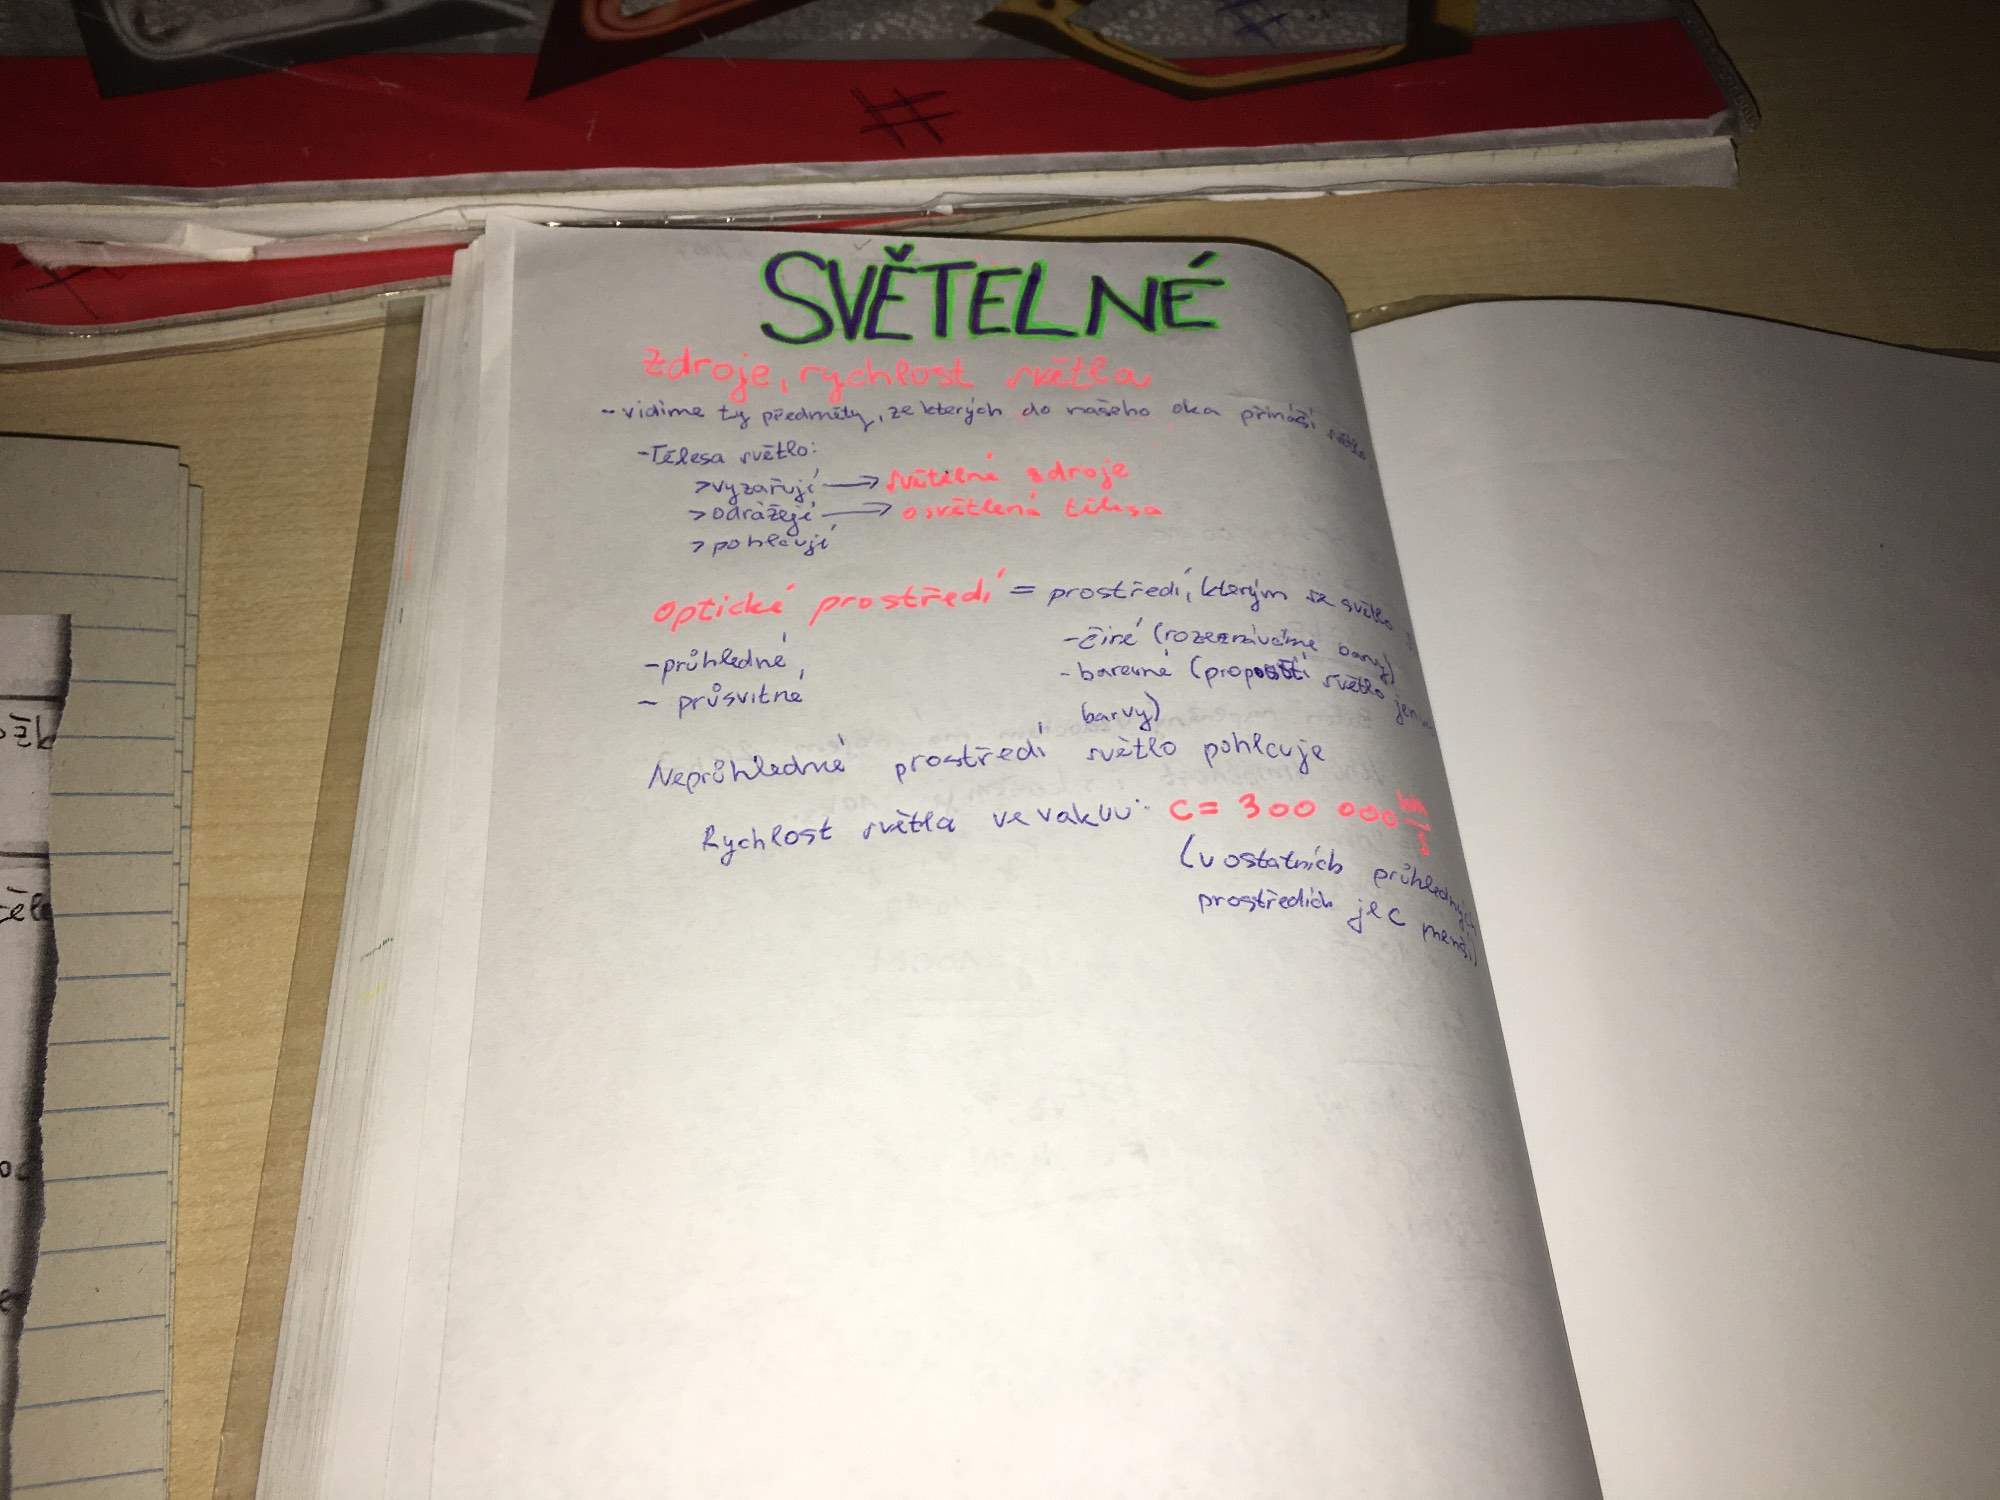 SVĚTELNÉ
Zdroje, rychlost světla
- vidíme ty předměty, ze kterých do našeho oka přináší světlo
- Tělesa světlo:
> vyzařují → světelné zdroje
> odrážejí → osvětlená tělesa
> pohlcují
Optické prostředí = prostředí, kterým se světlo
- průhledné,
- průsvitné
- čiré (rozeznáváme barvy)
- barevné (propouští světlo jen
barvy)
Neprůhledné prostředí světlo pohlcuje
Rychlost světla ve vakuu: c = 300 000 km/s
(v ostatních průhledných
prostředích je c menší)